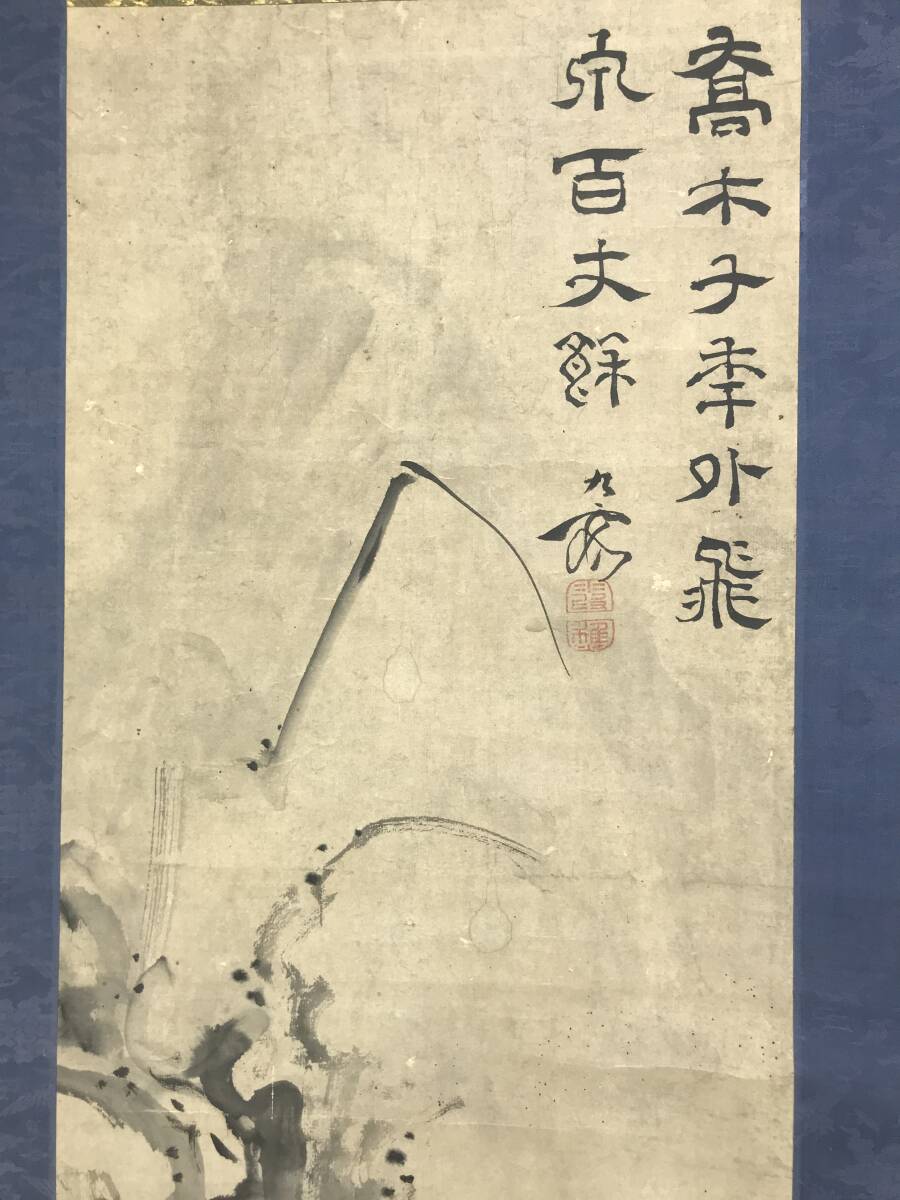 喬木千年外飛
泉百丈餘
九霞